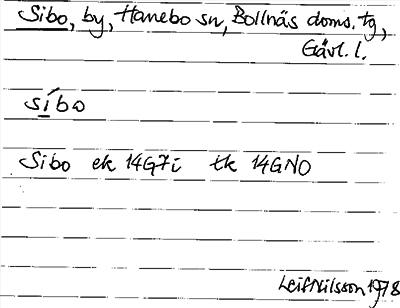 Sibo, by, Hanebo sn, Bollnäs doms. tg,
Gävl. l.
síbo
Sibo ek 14G7i tk 14GNO
Leif Nilsson 1978